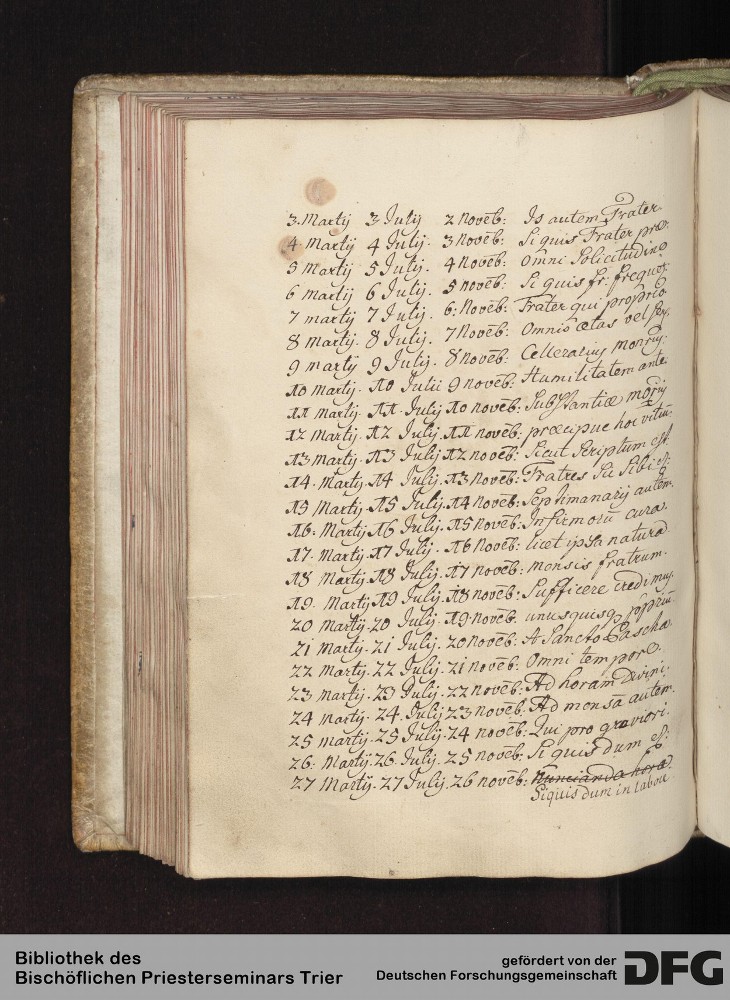 3. Martij 3 Julij 2 novēb: Is autem Frater
4 Martij 4 Julij. 3 novēb: Si quis Frater præ
5 Martij 5 Julij. 4 novēb: Omni Solicitudine
6 Martij 6 Julij. 5 novēb: Si quis fr. frequēr
7 martij 7 Julij. 6: Novēb: Frater qui proprio
8 Martij. 8 Julij. 7 Novēb: Omnis ætas vel
9 martij 9 Julij. 8 novēb: Cellerarius monrij:
10 martij. 10 Julii 9 novēb: Humilitatem ante
11 martij. 11. Julij 10 novēb: Substantiæ mōrij
12 Martij. 12 Julij 11 novēb: præcipue hoc vitiū
13 Martij. 13 Julij 12 novēb: Sicut Scriptum est
14. Martij. 14 Julij. 13 Novēb: Fratres Sic Sibi
15 Martij. 15 Julij. 14 Novēb: Septimanarij autem.
16. Martij 16 Julij. 15 Novēb: Infirmorū cura.
17. Martij. 17 Julij. 16 Novēb: licet ipsa natura
18 Martij. 18 Julij. 17 novēb: mensis fratrum.
19. Martij 19 Julij 18 novēb: Sufficere credimus.
20 Martij. 20 Julij. 19. novēb. unusquisq ppriū
21 Martij. 21 Julij. 20 novēb: A Sancto Pascha
22 Martij. 22 Julij. 21 novēb: Omni tempore.
23 martij. 23 Julij. 22 novēb: Ad horam Divini:
24 martij. 24. Julij 23 novēb: Ad mensā autem.
25 martij. 25 Julij. 24 novēb: Qui pro graviori.
26. Martij. 26. Julij. 25 novēb: Si quis dum
27 Martij. 27 Julij. 26 novēb: Nuncianda hora
Siquis dum in labore
Bibliothek des
Bischöflichen Priesterseminars Trier
gefördert von der
Deutschen Forschungsgemeinschaft DFG